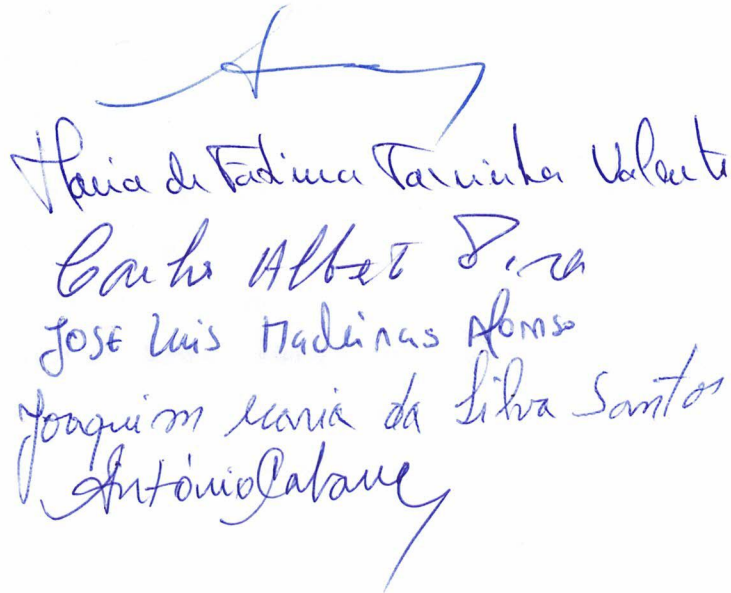 Maria de Fátima Farinha Valente
Carlos Albert
José Luis Madeiras Afonso
Joaquim Maria da Silva Santos
António